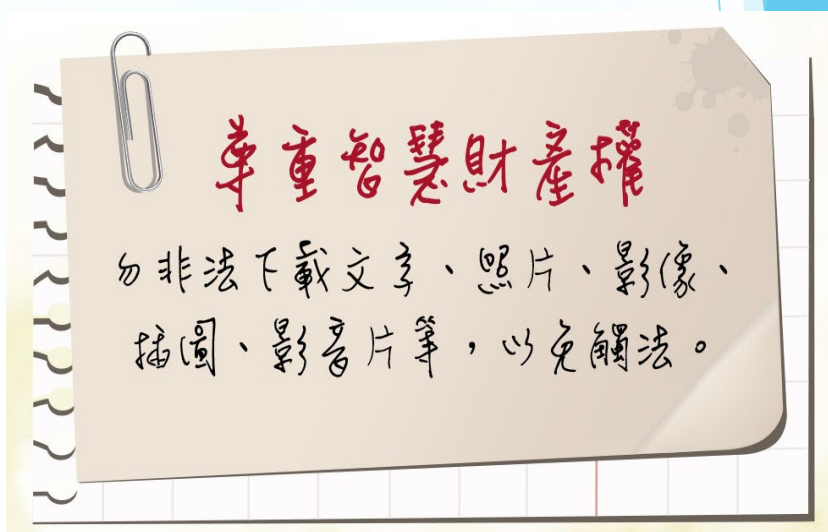 尊重智慧財產權
勿非法下載文字、照片、影像、
插圖、影音片等，以免觸法。